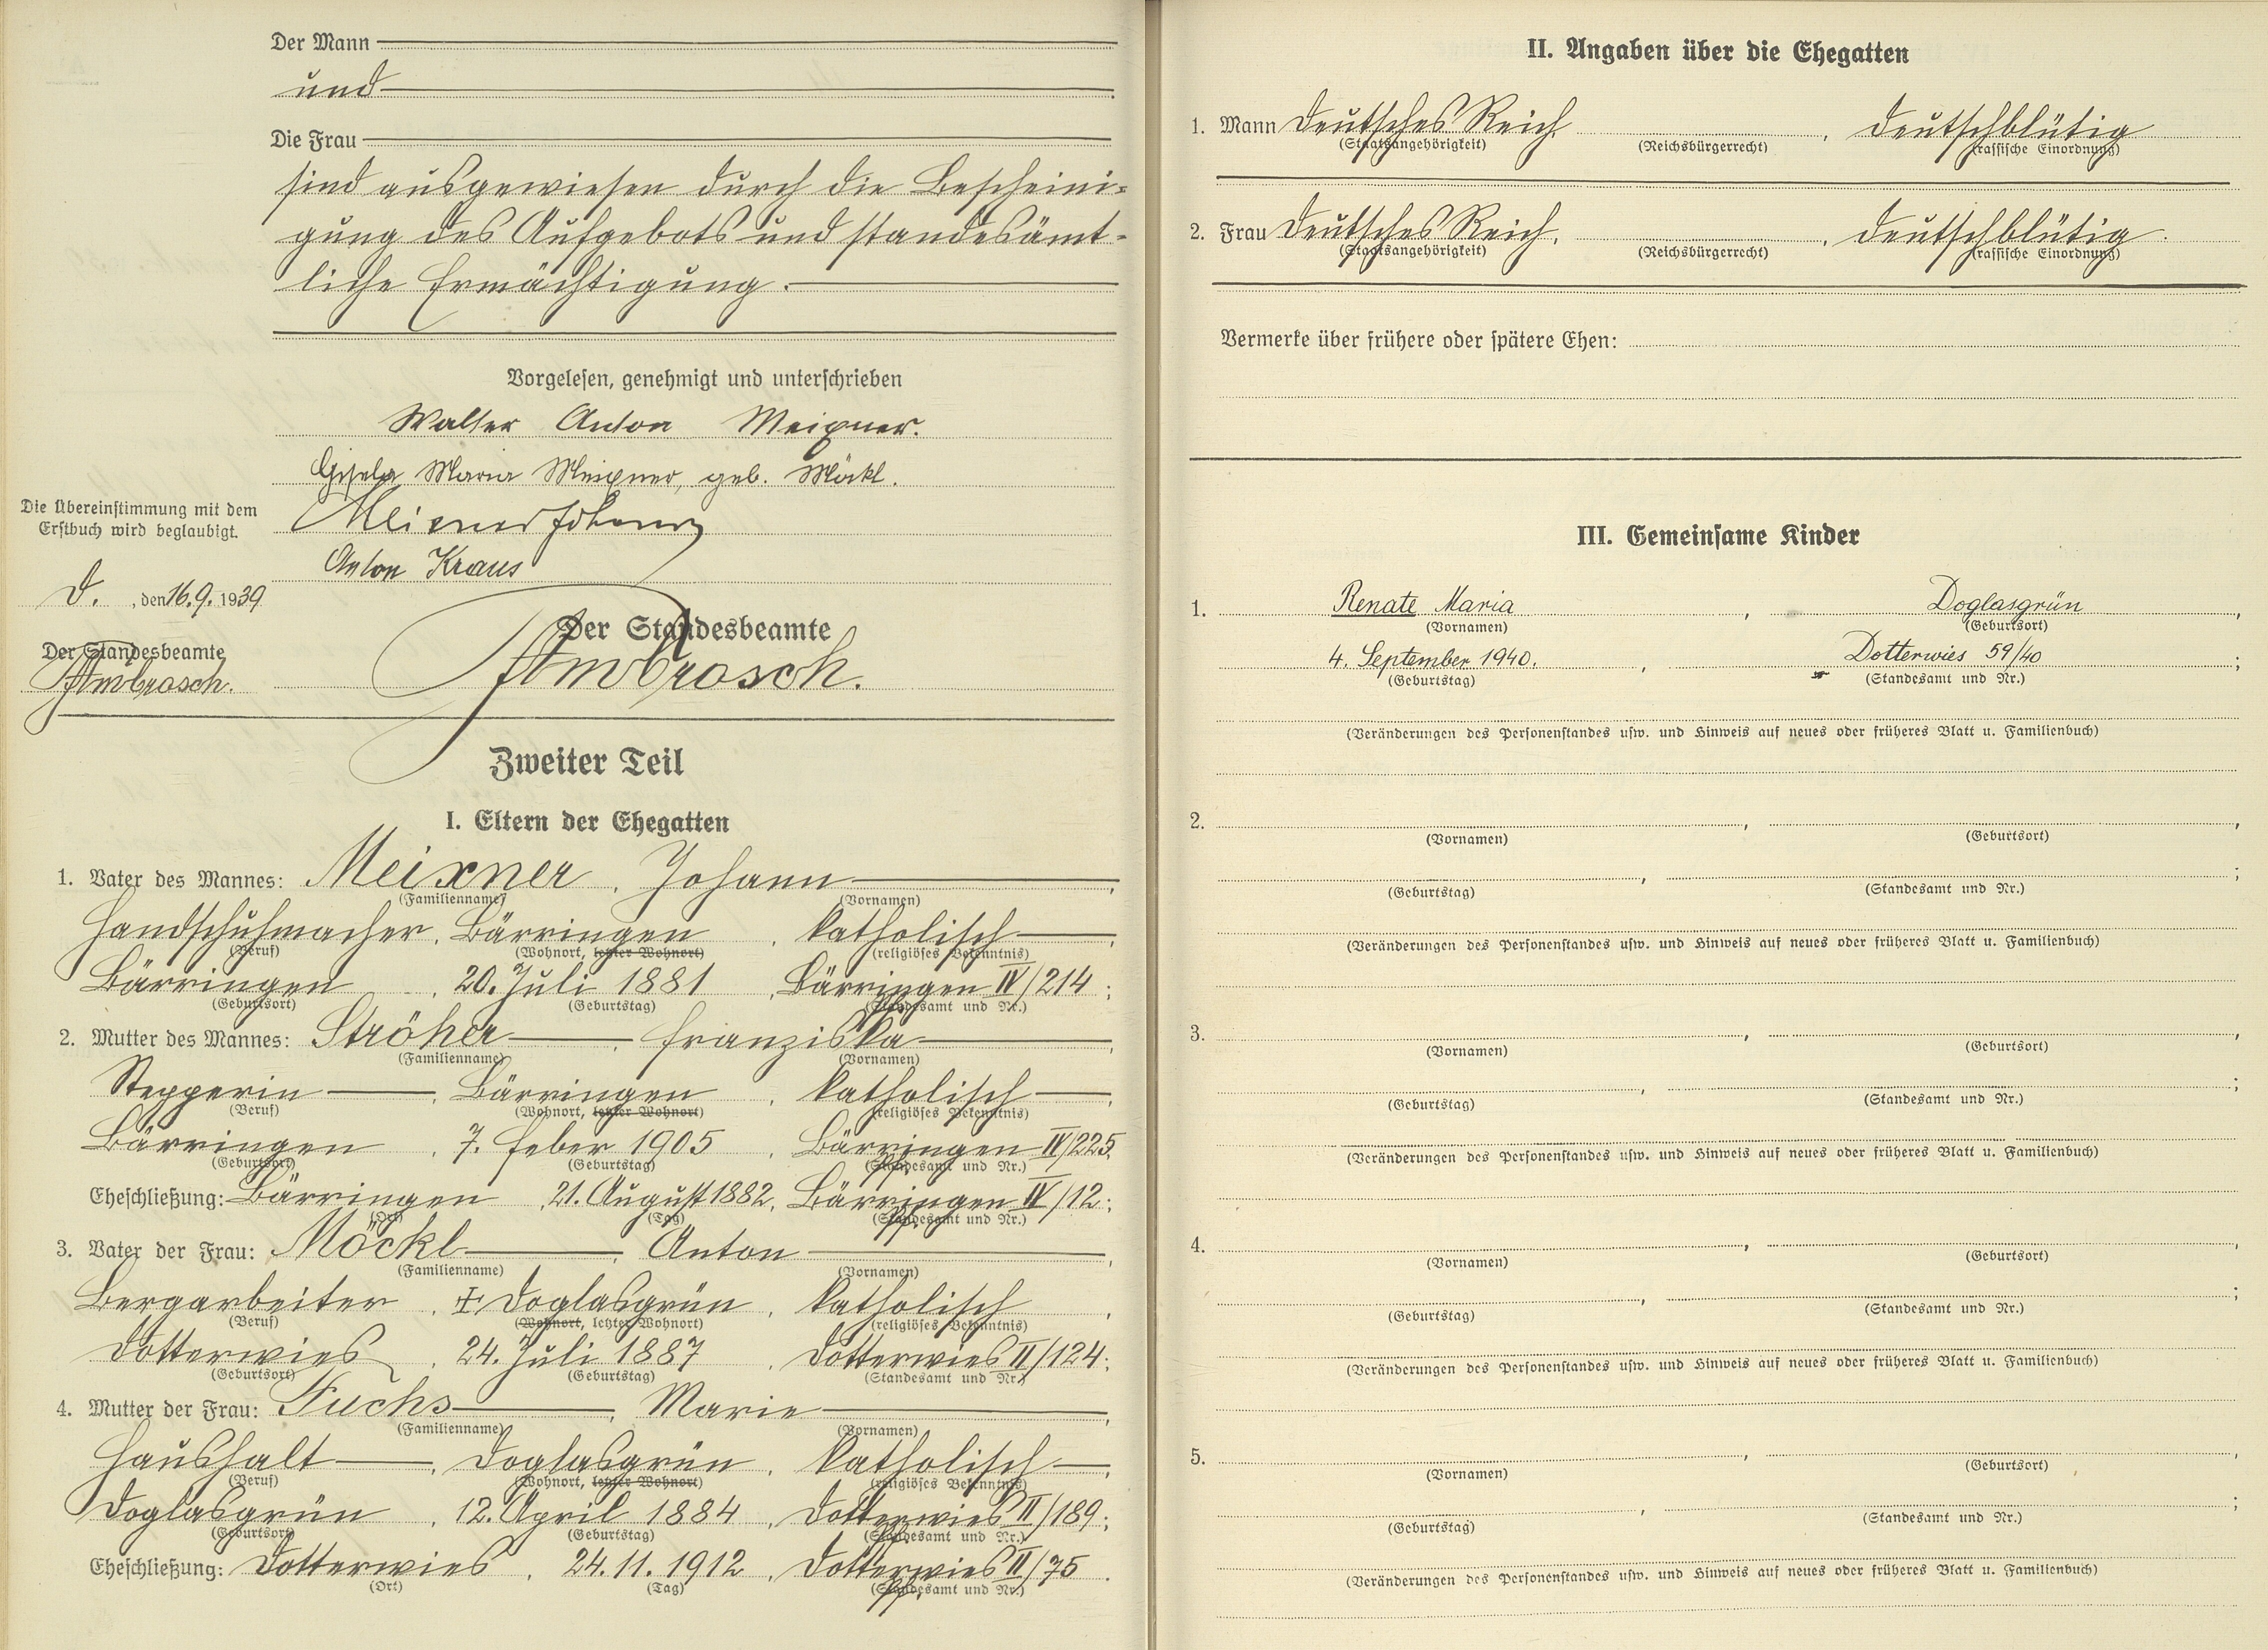 Der Mann
und
Die Frau
sind ausgewiesen durch die Bescheini-
gung des Aufgebots und standesämt-
liche Ermächtigung.
Vorgelesen, genehmigt und unterschrieben
Walter Anton Meixner.
Gisela Maria Meixner, geb. Möckl.
Meixner Johann
Anton Kraus
Die Übereinstimmung mit dem
Erstbuch wird beglaubigt.
D. , den 16.9. 1939
Der Standesbeamte
Ambrosch.
Der Standesbeamte
Ambrosch.
Zweiter Teil
I. Eltern der Ehegatten
1. Vater des Mannes: Meixner, Johann
(Familienname) (Vornamen)
Handschuhmacher, Bärringen, katholisch
(Beruf) (Wohnort, letzter Wohnort) (religiöses Bekenntnis)
Bärringen, 20. Juli 1881, Bärringen IV/214;
(Geburtsort) (Geburtstag) (Standesamt und Nr.)
2. Mutter des Mannes: Ströher, Franziska
(Familienname) (Vornamen)
Stepperin, Bärringen, katholisch
(Beruf) (Wohnort, letzter Wohnort) (religiöses Bekenntnis)
Bärringen, 7. Feber 1905, Bärringen IV/225,
(Geburtsort) (Geburtstag) (Standesamt und Nr.)
Eheschließung: Bärringen, 21. August 1882, Bärringen IV/12;
(Ort) (Tag) (Standesamt und Nr.)
3. Vater der Frau: Möckl, Anton
(Familienname) (Vornamen)
Bergarbeiter, ✝ Doglasgrün, katholisch,
(Beruf) (Wohnort, letzter Wohnort) (religiöses Bekenntnis)
Dotterwies, 24. Juli 1887, Dotterwies II/124;
(Geburtsort) (Geburtstag) (Standesamt und Nr.)
4. Mutter der Frau: Fuchs, Marie
(Familienname) (Vornamen)
Haushalt, Doglasgrün, katholisch
(Beruf) (Wohnort, letzter Wohnort) (religiöses Bekenntnis)
Doglasgrün, 12. April 1884, Dotterwies II/189;
(Geburtsort) (Geburtstag) (Standesamt und Nr.)
Eheschließung: Dotterwies, 24.11.1912, Dotterwies II/75.
(Ort) (Tag) (Standesamt und Nr.)
II. Angaben über die Ehegatten
1. Mann Deutsches Reich, deutschblütig
(Staatsangehörigkeit) (Reichsbürgerrecht) (rassische Einordnung)
2. Frau Deutsches Reich, deutschblütig.
(Staatsangehörigkeit) (Reichsbürgerrecht) (rassische Einordnung)
Vermerke über frühere oder spätere Ehen:
III. Gemeinsame Kinder
1. Renate Maria, Doglasgrün,
(Vornamen) (Geburtsort)
4. September 1940. , Dotterwies 59/40;
(Geburtstag) (Standesamt und Nr.)
(Veränderungen des Personenstandes usw. und Hinweis auf neues oder früheres Blatt u. Familienbuch)
2.
(Vornamen) (Geburtsort)
(Geburtstag) (Standesamt und Nr.)
(Veränderungen des Personenstandes usw. und Hinweis auf neues oder früheres Blatt u. Familienbuch)
3.
(Vornamen) (Geburtsort)
(Geburtstag) (Standesamt und Nr.)
(Veränderungen des Personenstandes usw. und Hinweis auf neues oder früheres Blatt u. Familienbuch)
4.
(Vornamen) (Geburtsort)
(Geburtstag) (Standesamt und Nr.)
(Veränderungen des Personenstandes usw. und Hinweis auf neues oder früheres Blatt u. Familienbuch)
5.
(Vornamen) (Geburtsort)
(Geburtstag) (Standesamt und Nr.)
(Veränderungen des Personenstandes usw. und Hinweis auf neues oder früheres Blatt u. Familienbuch)